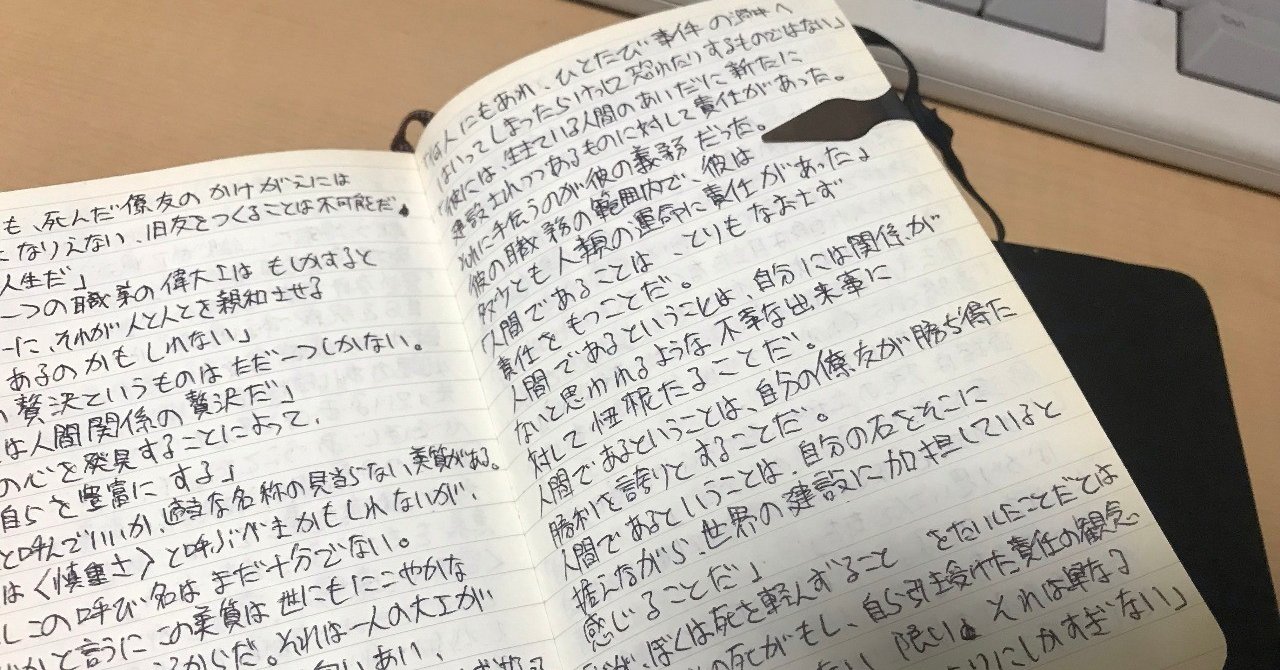 も、死んだ僚友のかけがえには
なりえない、旧友をつくることは不可能だ。
人生だ」
一つの職業の偉大さは もしかすると
一に、それが人と人とを親和させる
あるのかもしれない」
贅沢というものはただ一つしかない。
は人間関係の贅沢だ」
の心を発見することによって、
自らを豊富にする」
と呼んでいいか、適当な名称の見当らない美質がある。
〈慎重さ〉と呼ぶべきかもしれないが、
しこの呼び名はまだ十分でない。
かと言うにこの美質は世にもにこやかな
るからだ。それは一人の大工が
向いあい、
人にもあれ、ひとたび事件の渦中へ
はいってしまったらけっして恐れたりするものではない」
「彼には、生きている人間のあいだに新たに
建設されつつあるものに対して責任があった。
それに手伝うのが彼の義務だった。
彼の職務の範囲内で、彼は
多少とも人類の運命に責任があった」
「人間であることは、とりもなおさず
責任をもつことだ。
人間であるということは、自分には関係が
ないと思われるような不幸な出来事に
対して忸怩たることだ。
人間であるということは、自分の僚友が勝ち得た
勝利を誇りとすることだ。
人間であるということは、自分の石をそこに
据えながら、世界の建設に加担していると
感じることだ」
ぼくは死を軽んずること をたいしたことだとは
の死がもし、自ら引き受けた責任の観念、
限り、それは単なる
にしかすぎない」